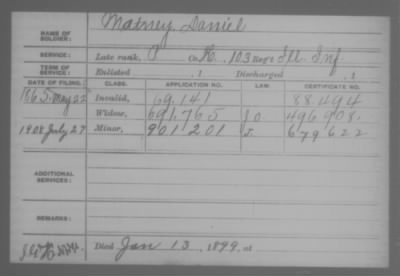 NAME OF SOLDIER: Matney, Daniel
SERVICE: Late rank, P Co. K, 103 Reg't Ill Inf
TERM OF SERVICE: Enlisted , 1 Discharged , 1
DATE OF FILING. CLASS. APPLICATION NO. LAW. CERTIFICATE NO.
1865 May 22 Invalid, 69.141 88.494
Widow, 691.765 496.908.
1908 July 27 Minor, 901 201 679 622
ADDITIONAL SERVICES:
REMARKS:
Died Jan 13, 1899, at